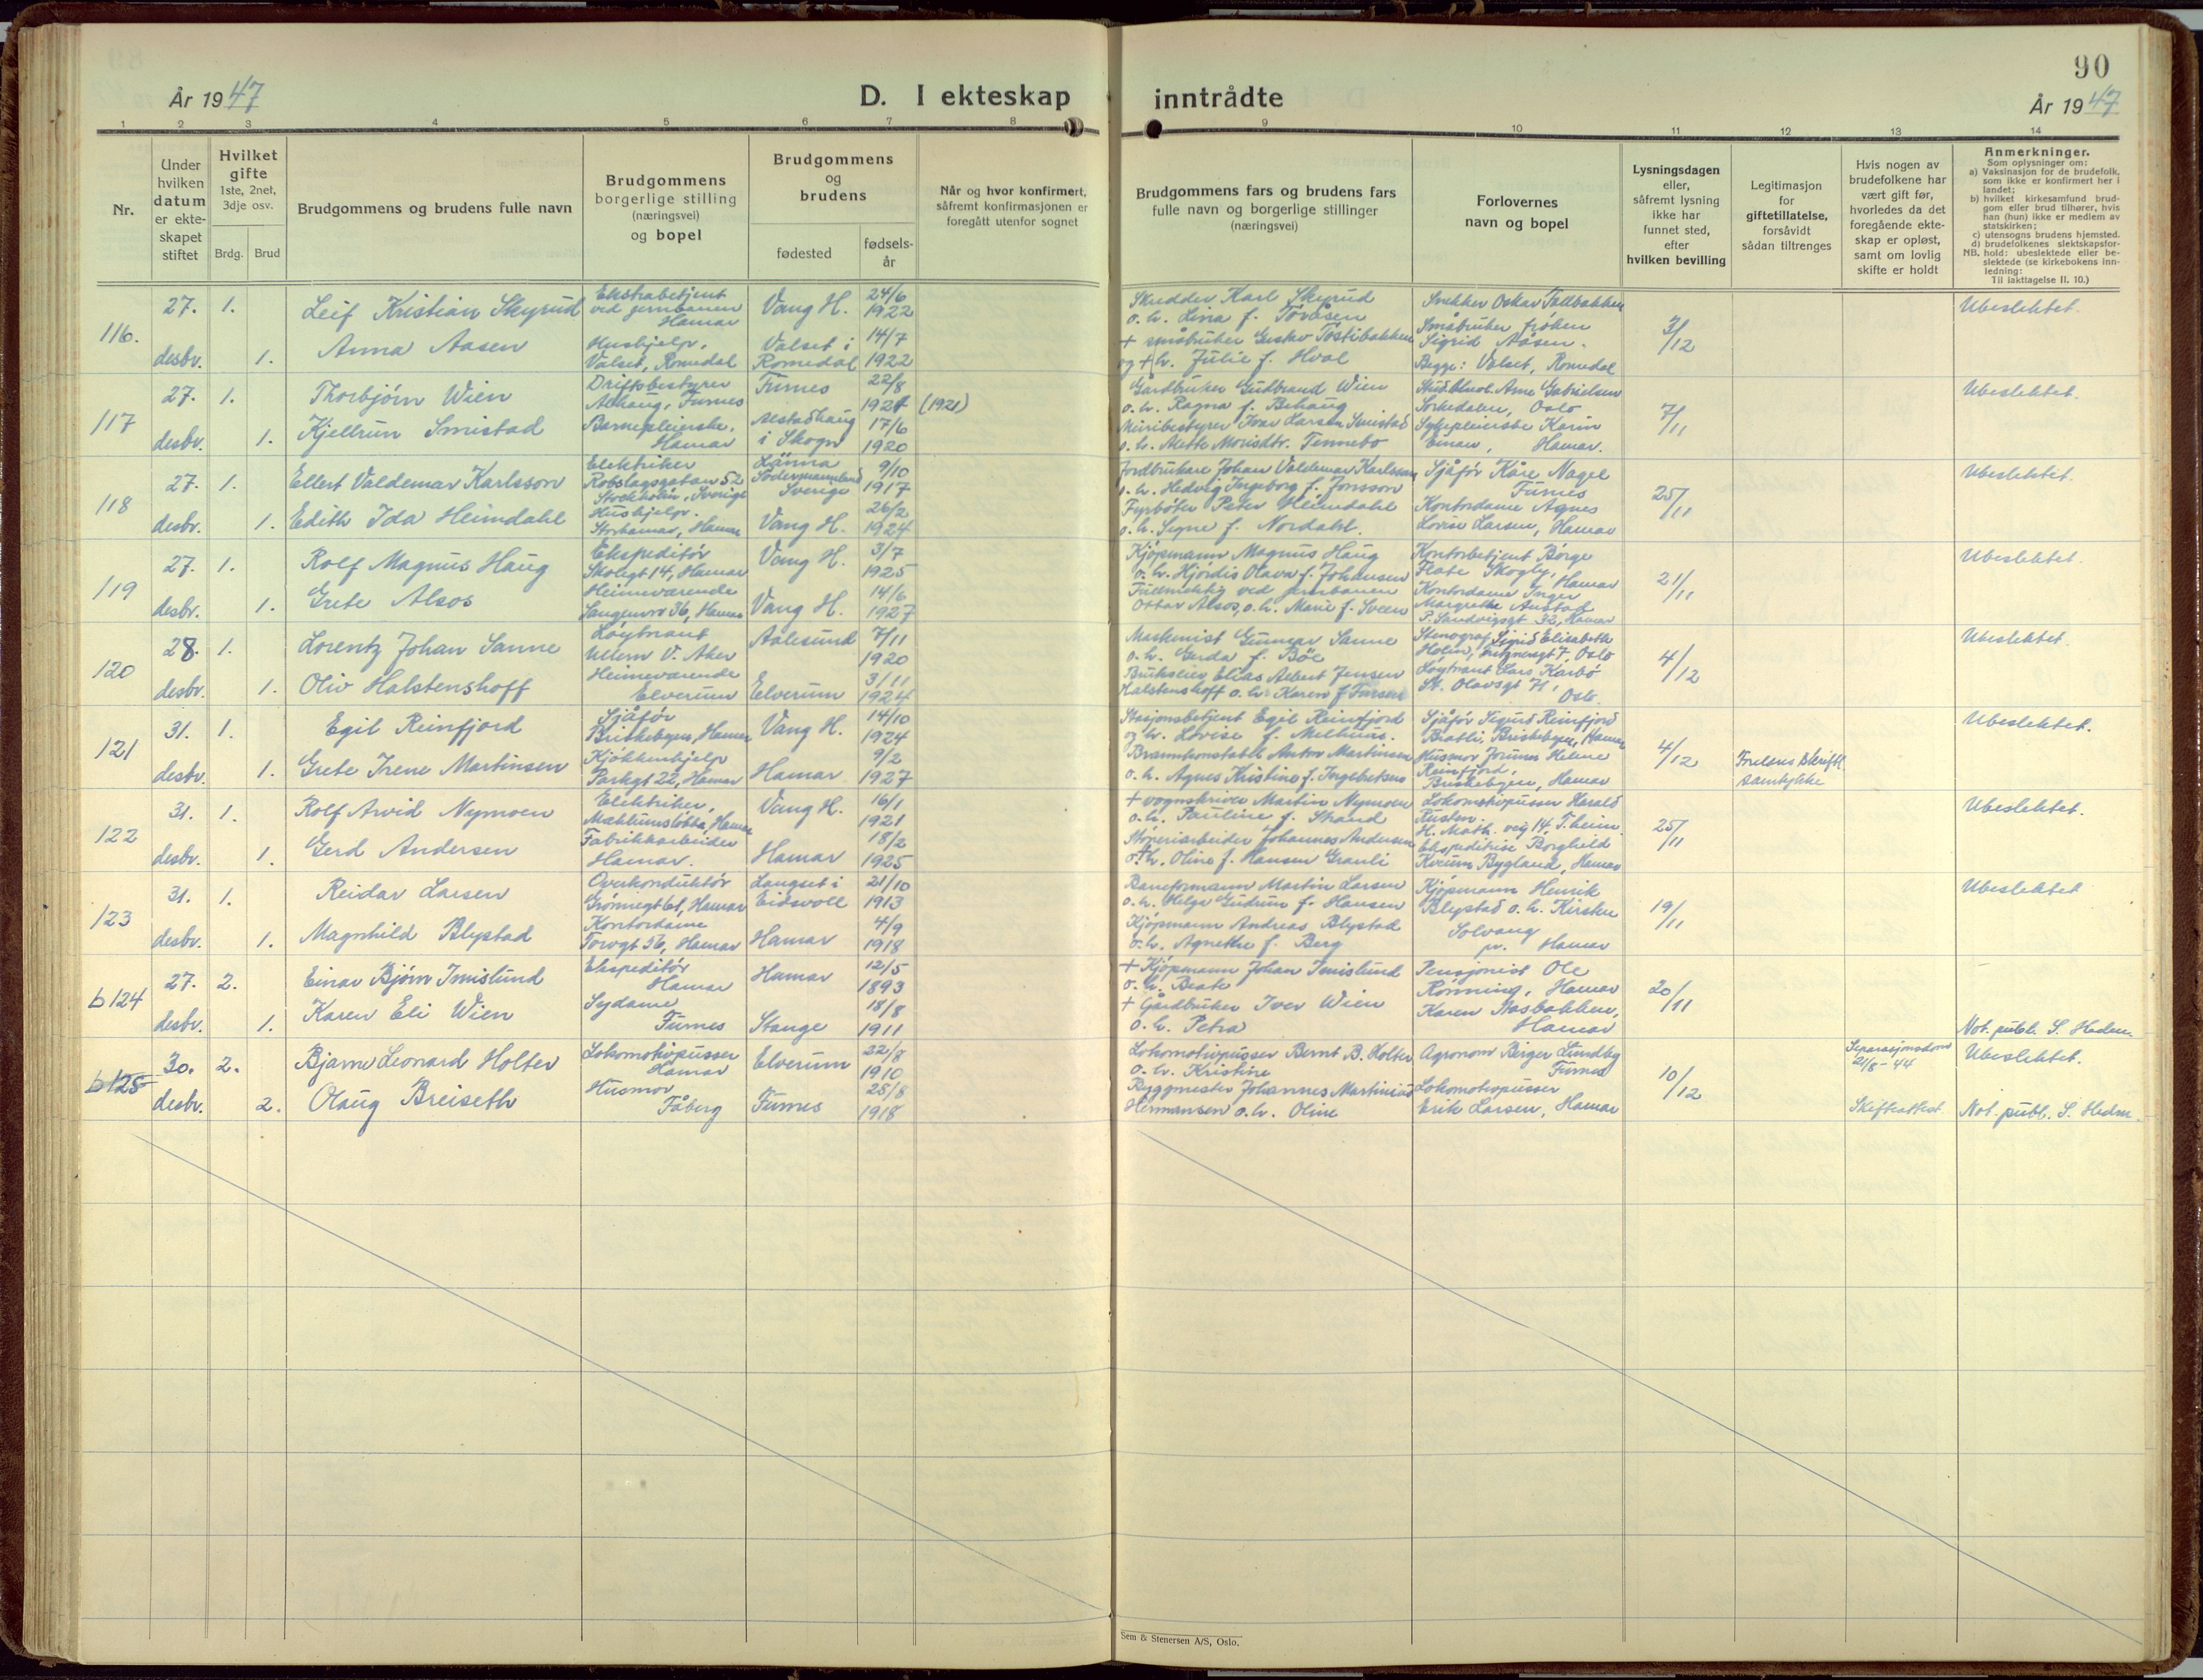 90
År 1947
D. I ekteskap inntrådte
År 1947
1 2 3 4 5 6 7 8 9 10 11 12 13 14
Nr.
Under
hvilken
datum
er ekte-
skapet
stiftet
Hvilket
gifte
1ste, 2net,
3dje osv.
Brdg. Brud
Brudgommens og brudens fulle navn
Brudgommens
borgerlige stilling
(næringsvei)
og bopel
Brudgommens
og
brudens
fødested
fødsels-
år
Når og hvor konfirmert,
såfremt konfirmasjonen er
foregått utenfor sognet
Brudgommens fars og brudens fars
fulle navn og borgerlige stillinger
(næringsvei)
Forlovernes
navn og bopel
Lysningsdagen
eller,
såfremt lysning
ikke har
funnet sted,
efter
hvilken bevilling
Legitimasjon
for
giftetillatelse,
forsåvidt
sådan tiltrenges
Hvis nogen av
brudefolkene har
vært gift før,
hvorledes da det
foregående ekte-
skap er opløst,
samt om lovlig
skifte er holdt
Anmerkninger.
Som oplysninger om:
a) Vaksinasjon for de brudefolk,
som ikke er konfirmert her i
landet;
b) hvilket kirkesamfund brud-
gom eller brud tilhører, hvis
han (hun) ikke er medlem av
statskirken;
c) utensogns brudens hjemsted.
d) brudefolkenes slektskapsfor-
NB. hold: ubeslektede eller be-
slektede (se kirkebokens inn-
ledning:
Til iakttagelse II. 10.)
116.
27. 1.
desbr. 1.
Leif Kristian Skyrud
Anna Aasen
Ekstrabetjent
ved jernbanen
Hamar
Hushjelp,
Valset, Romedal
Vang H.
Valset i
Romedal
24/6
1922
14/7
1922
Skredder Karl Skyrud
o. h. Lina f.
+ småbruker Gustav
og + h. Julie f. Hval
Snekker Oskar
Småbruker
Sigrid Aasen.
Begge: Valset, Romedal
3/12
Ubeslektet.
117
27. 1.
desbr. 1.
Thorbjørn Wien
Kjellrun Smistad
Driftsbestyrer
Furnes
Barnepleierske,
Hamar
Furnes
Alstadhaug
i Skogn
22/8
1921 (1921)
17/6
1920
Gårdbruker Gudbrand Wien
o. h. Ragna f. Behaug
Ivar Larsen Smistad
o. h. Mette Tennebø
Arne Gabrielsen
Sørkedalen, Oslo
Sykepleierske Karin
Einan, Hamar.
7/11
Ubeslektet.
118
27. 1.
desbr. 1.
Ellert Valdemar Karlsson
Edith Ida Heimdahl
Elektriker
Robslagsgatan 52
Stockholm, Sverige
Hushjelp.
Storhamar, Hamar
Länna
Södermannland
Sverige
Vang H.
9/10
1917
26/2
1924
Jordbrukare Johan Valdemar Karlsson
o. h. Hedvig Ingeborg f. Jonsson
Fyrbøter Peter Heimdahl
o. h. Signe f. Nordahl.
Sjåfør Kåre Nagel
Furnes
Kontordame Agnes
Lovise Larsen, Hamar
25/11
Ubeslektet.
119
27. 1.
desbr. 1.
Rolf Magnus Haug
Grete Alsos
Ekspeditør
Skolegt 14, Hamar
Heimeværende
36, Hamar
Vang H.
Vang H.
3/7
1925
14/6
1927
Kjøpmann Magnus Haug
o. h. Hjørdis Olava f. Johansen
Fullmektig ved jernbanen
Ottar Alsos, o. h. Marie f. Sveen
Kontorbetjent Børge
Flate Skogly,
Hamar
Kontordame Inger
Margrethe Austad
P. Sandvigsgt 32, Hamar
21/11
Ubeslektet.
120
28. 1.
desbr. 1.
Lorentz Johan Sanne
Oliv Halstenshoff
Løytnant
Ullern V. Aker
Heimeværende
Elverum
Aalesund
Elverum
7/11
1920
3/11
1924
Maskinist Gunnar Sanne
o. h. Gerda f. Böe
Elias Albert Jensen
Halstenshoff o. h. Karen f.
Stenograf Sigrid Elisabeth
Holm, 7, Oslo
Løytnant Lars Karbö
St. Olavsgt 71,
Oslo.
4/12
Ubeslektet.
121
31. 1.
desbr. 1.
Egil Reinfjord
Grete Irene Martinsen
Sjåfør
Briskebyen, Hamar
Kjøkkenhjelp
Parkgt 22, Hamar
Vang H.
Hamar
14/10
1924
9/2
1927
Stasjonsbetjent Egil Reinfjord
og h. Lovise f. Melhuus.
Brannkonstabel Anton Martinsen
o. h. Agnes Kristine f. Ingebretsen
Sjåfør Sigurd Reinfjord
Bratli, Briskebyen, Hamar
Husmor Jorunn Helene
Reinfjord,
Briskebyen, Hamar
4/12
Foreldres skriftl.
samtykke
Ubeslektet.
122
31. 1.
desbr. 1.
Rolf Arvid Nymoen
Gerd Andersen
Elektriker,
Hamar
Fabrikkarbeider
Hamar.
Vang H.
Hamar
16/1
1921
18/2
1925
+ vognskriver Martin Nymoen
o. h. Pauline f. Strand
Støperiarbeider Johannes Andersen
o. + h. Oline f. Hansen Granli
Lokomotivpusser Harald
Rusten.
H. Math. veg 14, T.heim.
Ekspeditrise Borghild
Kveum Bygland, Hamar
25/11
Ubeslektet.
123
31. 1.
desbr. 1.
Reidar Larsen
Magnhild Blystad
Overkonduktør
Grønnegt 61, Hamar
Kontordame
Torvgt 56, Hamar
Langset i
Eidsvoll
Hamar
21/10
1913
4/9
1918
Baneformann Martin Larsen
o. h. Helga Gudrun f. Hansen
Kjøpmann Andreas Blystad
o. h. Agnethe f. Berg
Kjøpmann Henrik
Blystad o. h. Kirsten
Solvang
pr. Hamar
19/11
Ubeslektet
b 124
27. 2.
desbr. 1.
Einar Bjørn Imislund
Karen Eli Wien
Ekspeditør
Hamar
Sydame
Furnes
Hamar
Stange
12/5
1893
18/8
1911
+ Kjøpmann Johan Imislund
o. h. Beate
+ Gårdbruker Iver Wien
o. h. Petra
Pensjonist Ole
Rønning, Hamar
Karen Nasbakken,
Hamar
20/11
—
Not. publ. S. Hedm.
b 125
30. 2.
desbr. 2.
Bjarne Leonard Holter
Olaug Breiseth
Lokomotivpusser
Hamar
Husmor
Fåberg
Elverum
Furnes
22/8
1910
25/8
1918
Lokomotivpusser Bernt B. Holter
o. h. Kristine
Byggmester Johannes Martinius
Hermansen o. h. Oline
Agronom Birger Lundby
Furnes
Lokomotivpusser
Erik Larsen, Hamar
10/12
Separasjonsdom
21/8 - 44
Skifteattest
Ubeslektet.
Not. publ. S. Hedm.
Sem & Stenersen A/S, Oslo.